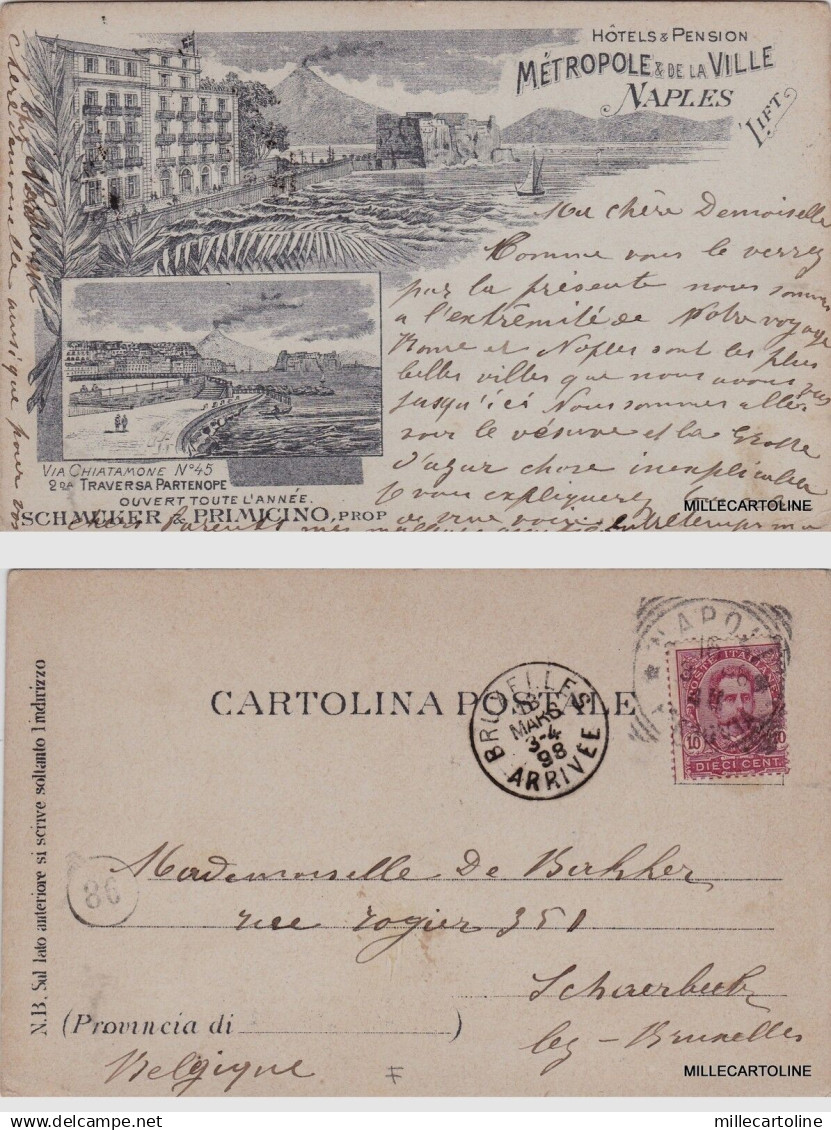 HÔTELS & PENSION
MÉTROPOLE & DE LA VILLE
NAPLES
LIFT
Ma chère Demoiselle
Comme vous le verrez
par la présente nous sommes
a l'extrêmité de Notre voyage
Rome et Naples sont les plus
belles villes que nous avons vus
jusqu'ici Nous sommes allés
sur le vésuve et la Grotte
d'azur chose inexplicable
VIA CHIATAMONE Nº45
2DA TRAVERSA PARTENOPE
OUVERT TOUTE L'ANNÉE.
SCHAUKER & PRIMICINO, PROP
de vive voix
chers parents mes
MILLECARTOLINE
NAPOLI
POSTE ITALIANE
10
10
DIECI CENT.
CARTOLINA POSTALE
BRUXELLES
MARS
3-4
98
ARRIVÉE
N.B. Sul lato anteriore si scrive soltanto l'indirizzo
86
Mademoiselle De Bakker
rue rogier 351
Schaerbeek
(Provincia di )
lez - Bruxelles
Belgique
MILLECARTOLINE
delcampe.net
millecartoline